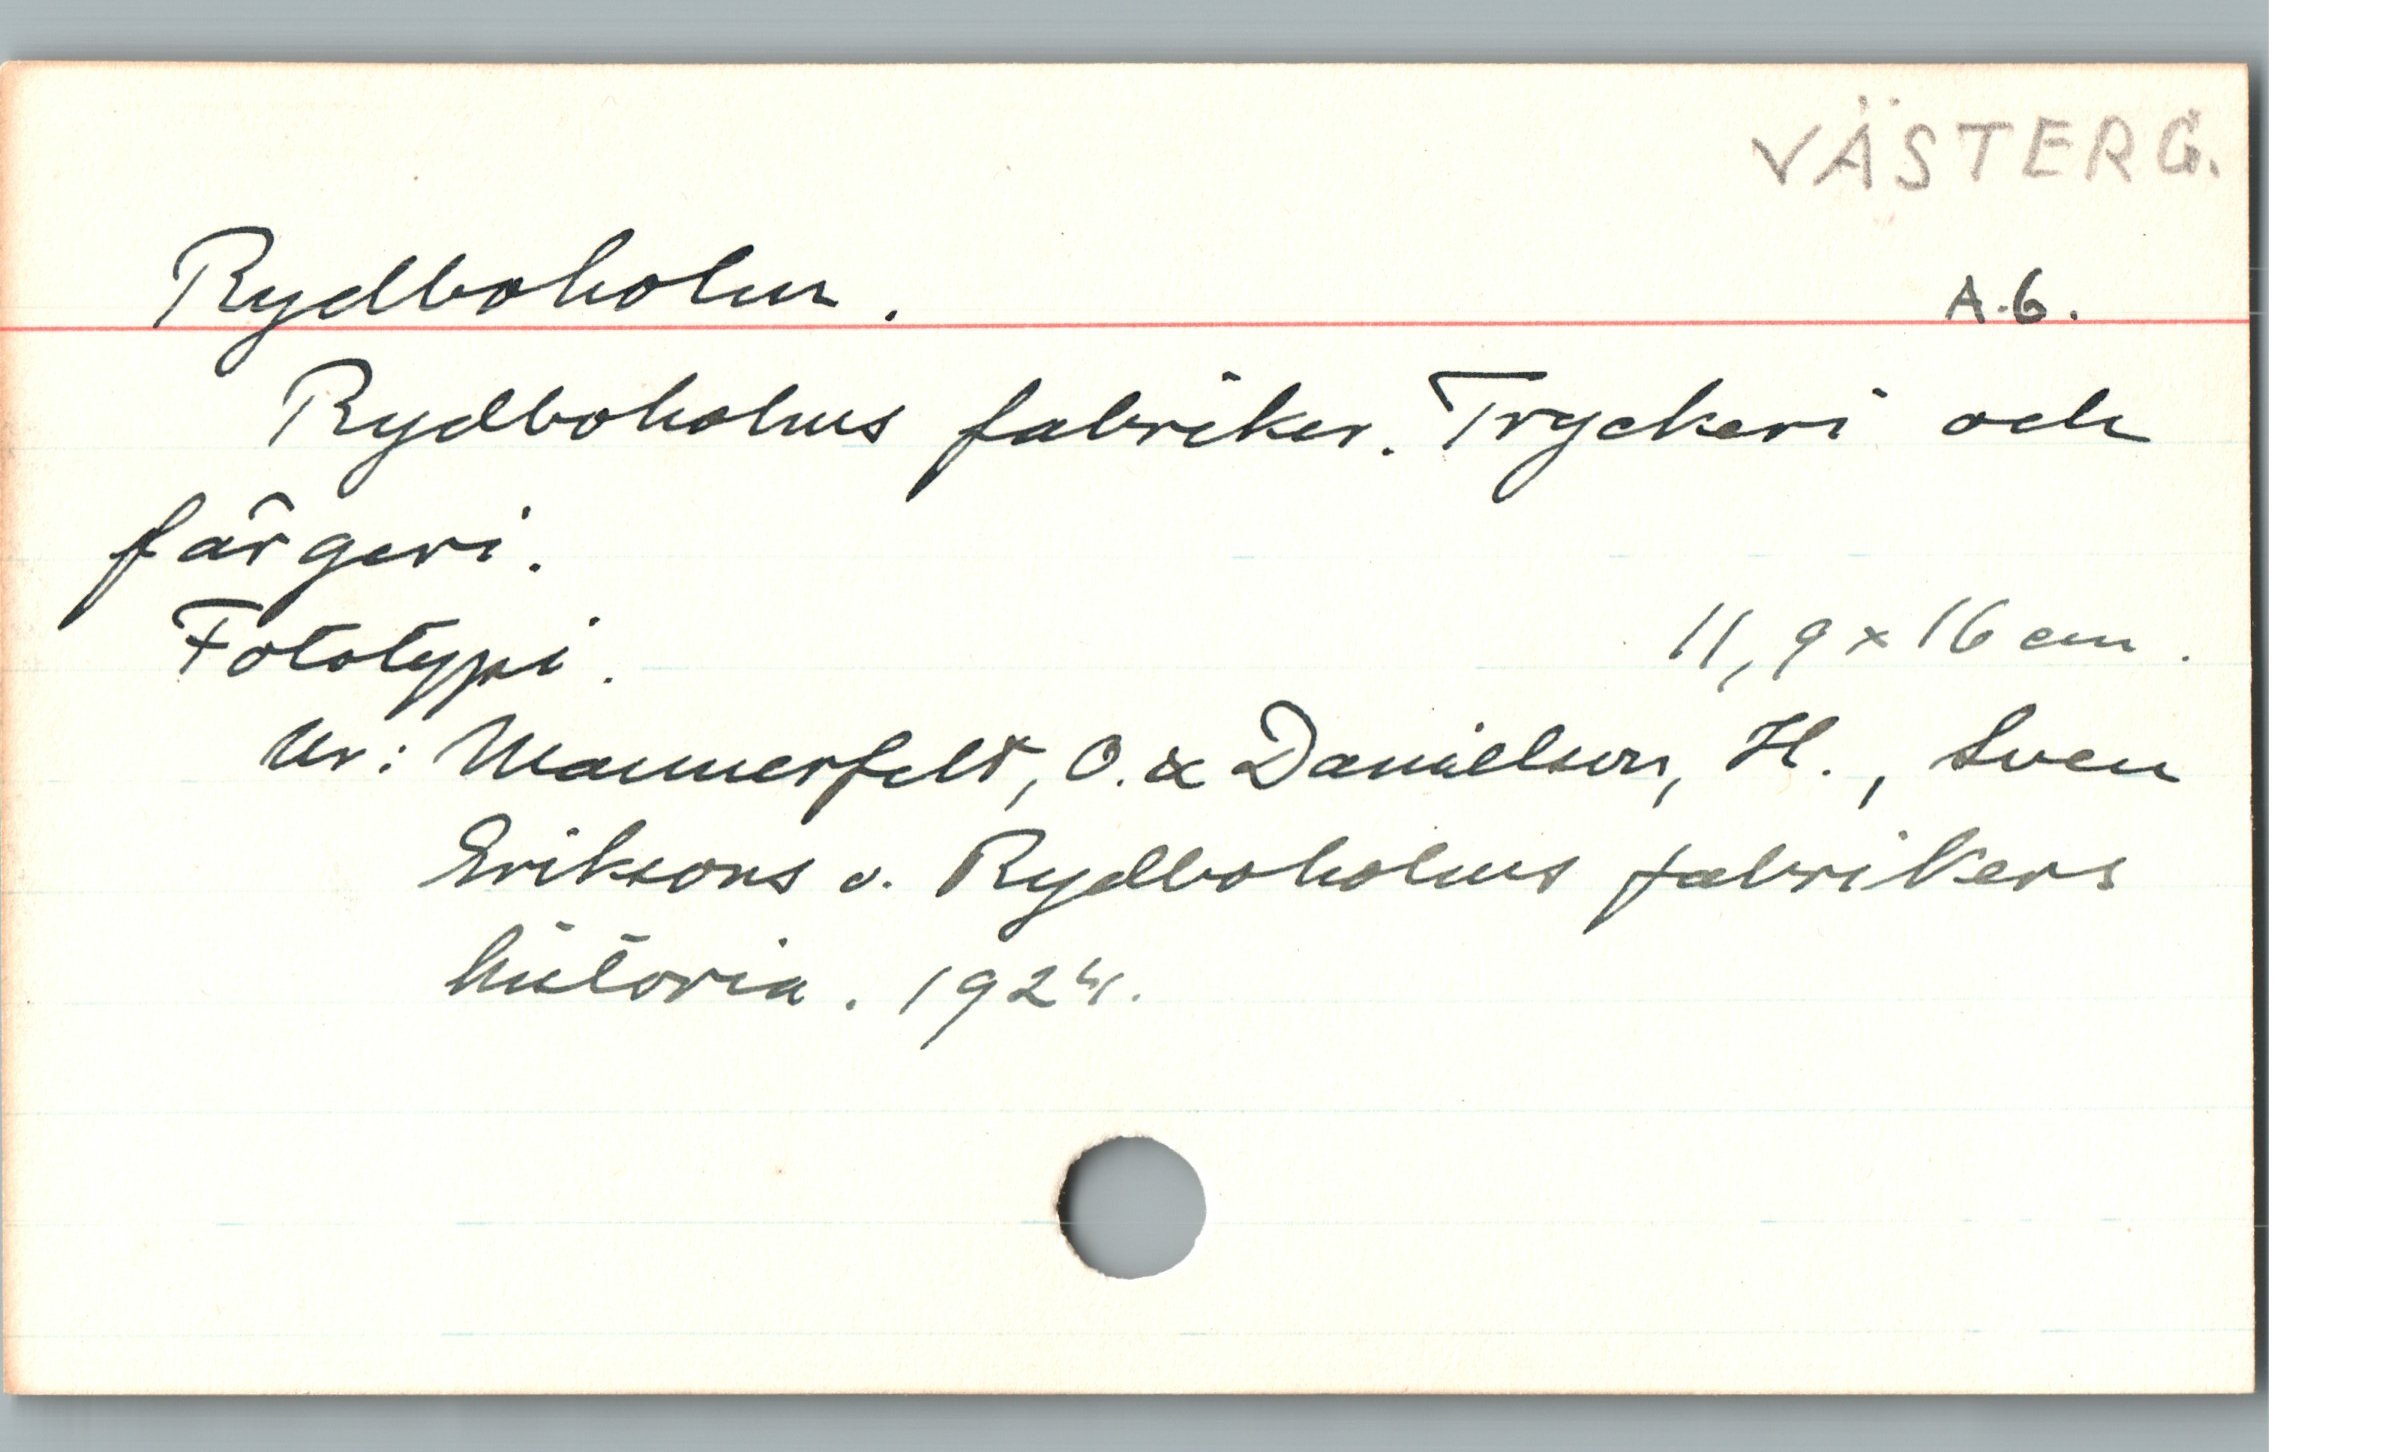 VÄSTERG.
Rydboholm. A.6.
Rydboholms fabriker. Tryckeri och
färgeri.
Fototypi. 11,9 x 16 cm.
Ur: Mannerfelt, O. & Danielson, H., Sven
Eriksons o. Rydboholms fabrikers
historia. 1924.